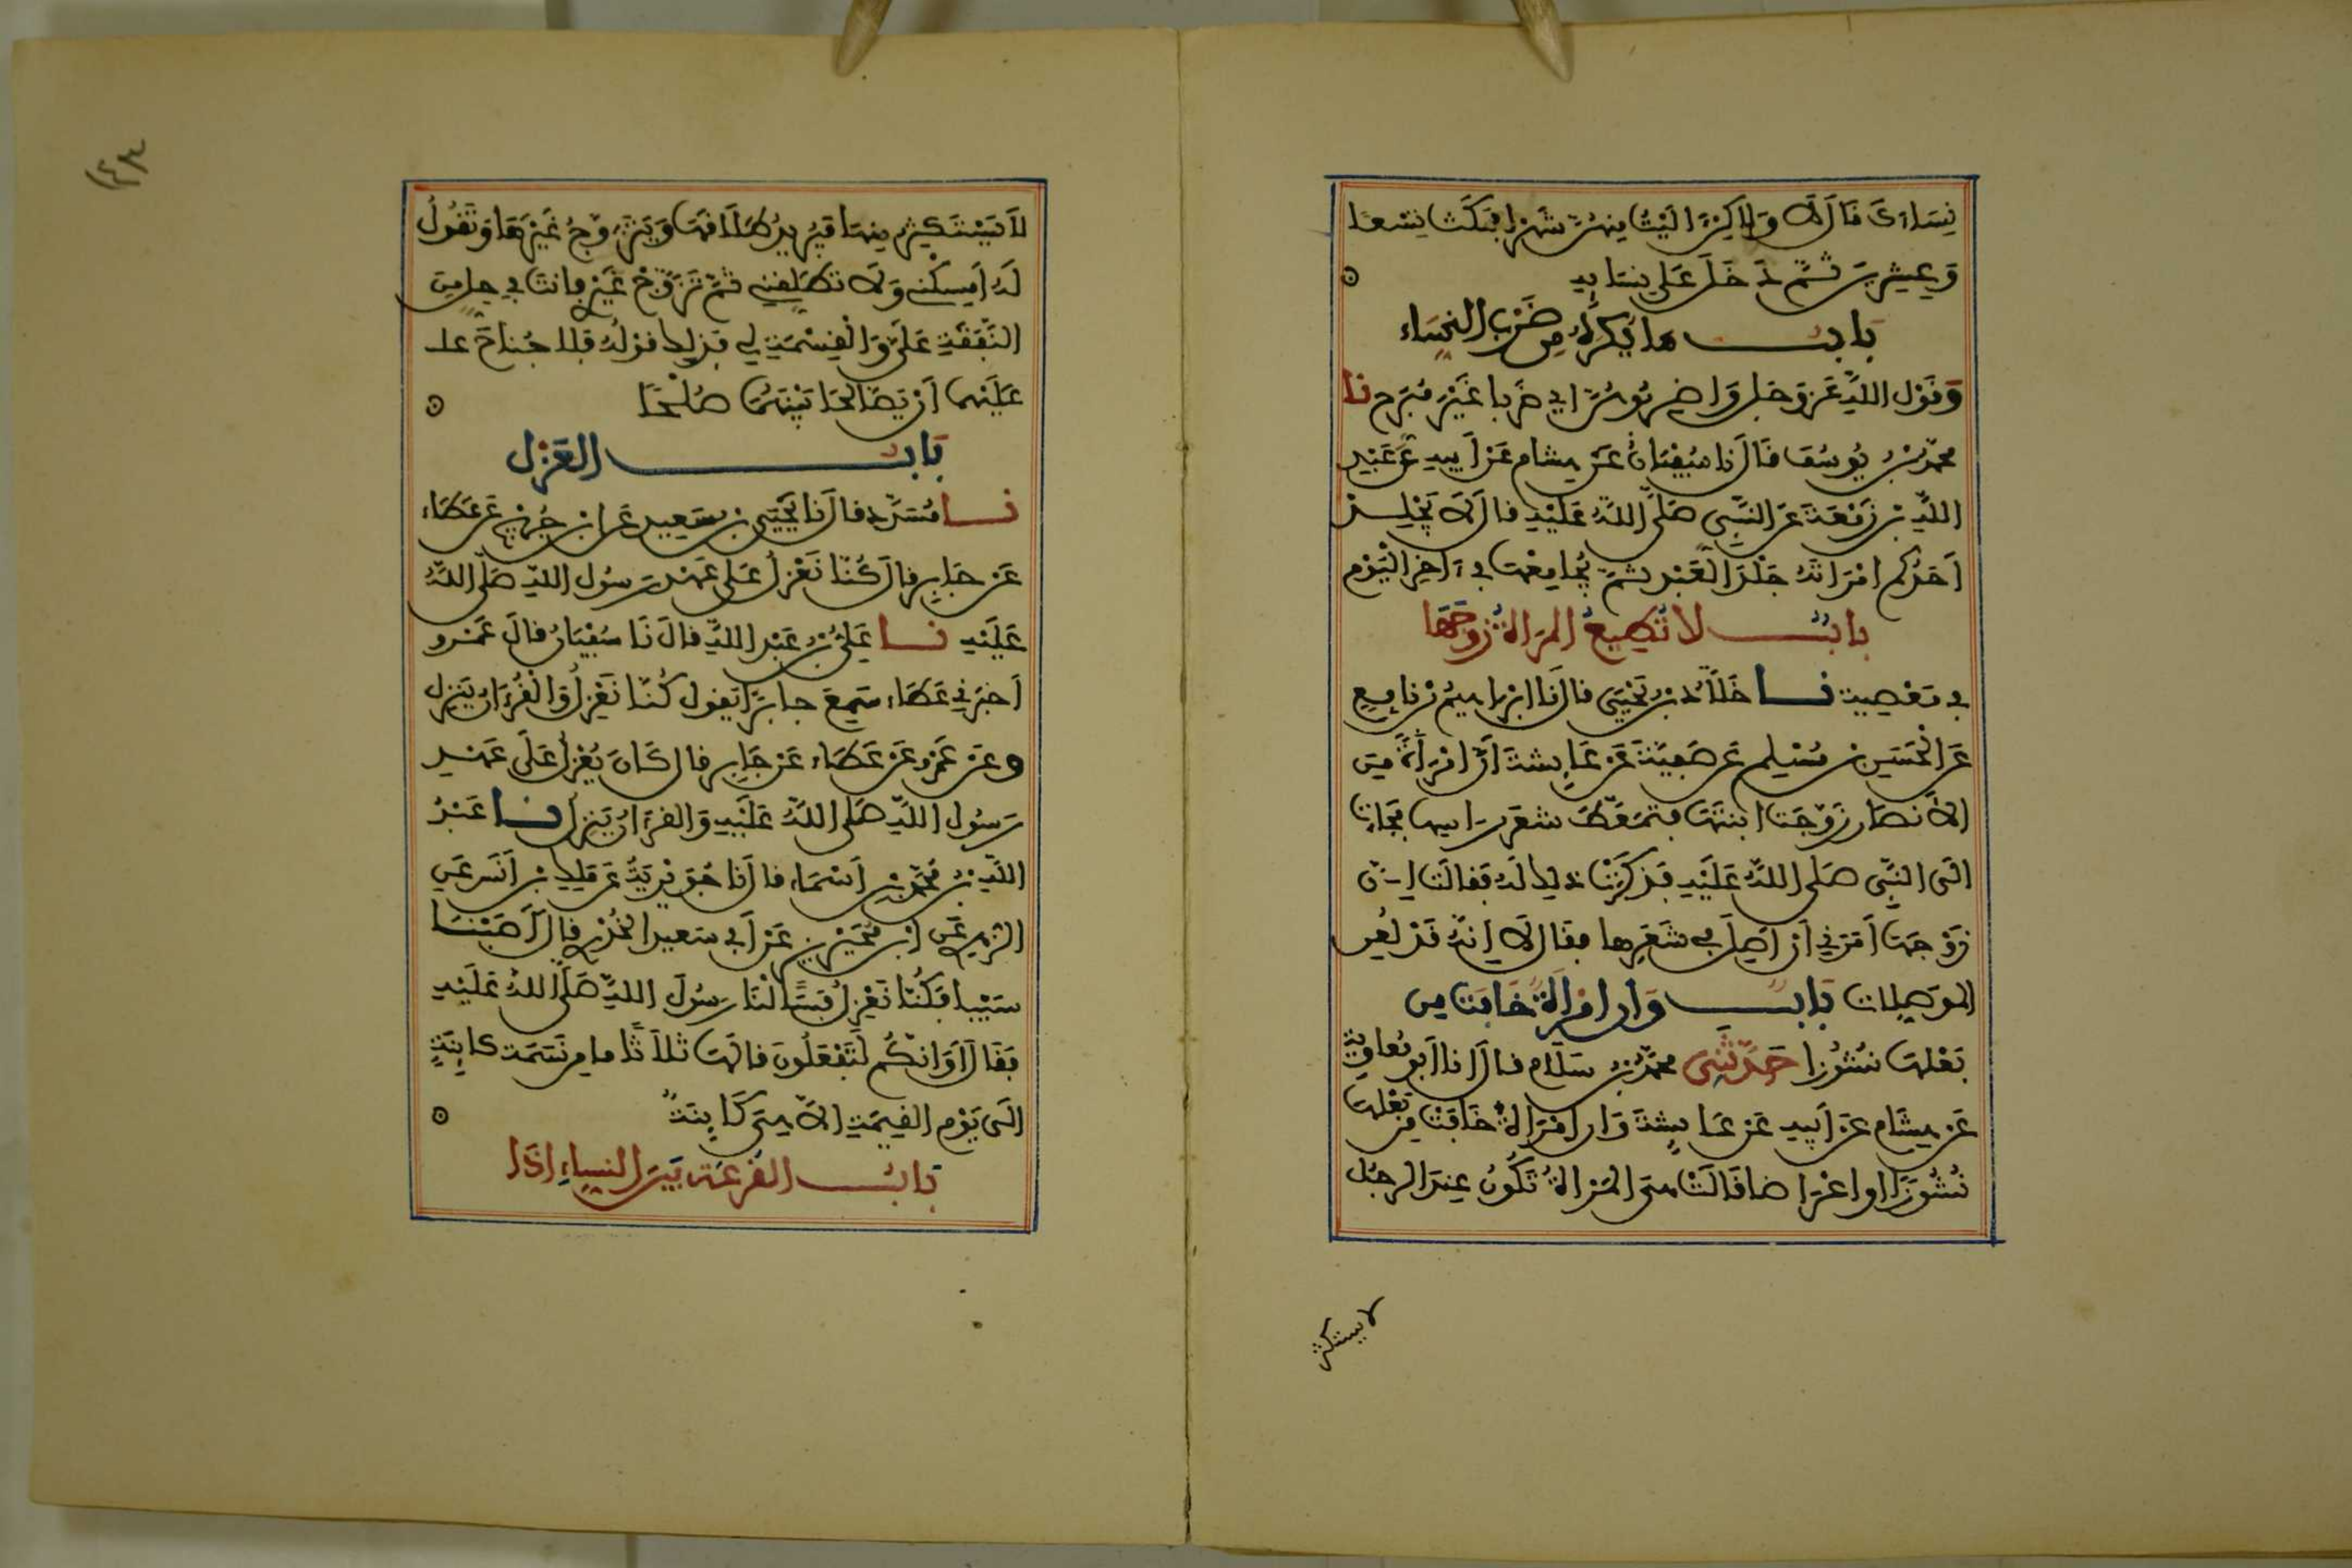 نِسَاءَكَ فَالَ لَا وَلَاكِنْ ءَالَيْتُ مِنْهُنَّ شَهْرًا فَمَكَثَ تِسْعًا
وَعِشْرِينَ ثُمَّ دَخَلَ عَلَى نِسَائِهِ
بَابُ مَا يُكْرَهُ مِن ضَرْبِ النِّسَاءِ
وَفَوْلِ اللَّهِ عَزَّ وَجَلَّ وَاضْرِبُوهُنَّ أي ضَرْبا غَيْرَ مُبَرِّحٍ نا
محمّد بْنُ يُوسُفَ فَالَ نا سُفْيَانُ عَنْ هِشَامٍ عَنْ أَبِيهِ عَنْ عَبْدِ
اللَّهِ بْنِ زَمْعَةَ عَنِ النَّبِيِّ صَلَّى اللَّهُ عَلَيْهِ فَالَ لَا يَجْلِدْ
أَحَدُكُم امْرَأَتَهُ جَلْدَ الْعَبْدِ ثُمَّ يُجَامِعُهَا فِي ءَاخِرِ الْيَوْمِ
بابٌ لا تُطِيعُ المَرْأةُ زَوْجَهَا
فِي مَعْصِيةٍ نا خَلَّادُ بْنُ يَحْيَى فالَ نَا ابْرَاهِيمُ بْنُ نَافِعٍ
عَنِ الْحَسَنِ بْنِ مُسْلِمٍ عَن صَفِيَّةَ عَنْ عَائِشَةَ أَنَّ امْرَأَةً مِنَ
الأَنصَارِ زَوَّجَتِ ابْنَتَهَا فَتَمَعَّطَ شَعَرُ رَاسِهَا فَجَاءَت
الَى النَّبِيِّ صَلَّى اللَّهُ عَلَيْهِ فَذَكَرَتْ ذَلِكَ لَهُ فَقَالَت إِنَّ
زَوْجَهَا أَمَرَنِي أَنْ أَصِلَ فِي شَعَرِهَا فَقَالَ لَا إِنَّهُ قَدْ لُعِنَ
المُوصِلاتُ بَابٌ وَإِنِ امْرَأَةٌ خَافَت مِن
بَعْلِهَا نُشُوزًا حَدَّثَنِي محمّدُ بْنُ سَلَامٍ فَالَ انا أَبُو مُعَاوِيَةَ
عَنْ هِشَامٍ عَنْ أَبِيهِ عَنْ عَائِشَةَ وَإِنِ امْرَأَةٌ خَافَتْ مِنْ بَعْلِهَا
نُشُوزًا أو اعْرَاضا فَالَتْ هي المَرْأةُ تَكُونُ عِندَ الرجُلِ
لا يستكثر
لاَ يَسْتَكْثِرُ مِنهَا فَيُرِيدُ طَلَاقَهَا وَيَتَزَوَّجُ غَيْرَهَا وَتَقُولُ
لَهُ أَمْسِكْنِي وَلَا تطَلِّقْنِي ثُمَّ تَزَوَّجْ غَيْرِي فأنتَ في حِلٍّ مِنَ
النَّفَقَةِ عَلَيَّ وَالْقِسْمَةِ لِي فَذَلِكَ قَوْلُهُ فَلَا جُنَاحَ علـ
عَلَيْهِمَا أَنْ يَصَّالَحَا بَيْنَهُمَا صُلْحًا
بَابُ العَزْلِ
نا مُسَدَّد فالَ نَا يَحْيَى بْنُ سَعِيدٍ عَنِ ابْنِ جُرَيْجٍ عَنْ عَطَاءٍ
عَنْ جَابِرٍ فالَ كُنَّا نَعْزِلُ عَلَى عَهْدِ رَسُولِ اللَّهِ صَلَّى اللَّهُ
عَلَيْهِ نا عَلِيُّ بْنُ عَبْدِ اللَّهِ فالَ نَا سُفْيَانُ فالَ عَمْرو
أَخبَرَنِي عَطَاء سَمِعَ جابِرًا يَقُولُ كُنَّا نَعْزِلُ وَالْقُرْءَانُ يَنزِل
وعَنْ عَمْرٍو عَنْ عَطَاءٍ عَنْ جَابِرٍ فالَ كَانَ يُعْزَلُ عَلَى عَهْدِ
رَسُولِ اللَّهِ صَلَّى اللَّهُ عَلَيْهِ وَالقرْءَانُ يَنزِلُ نا عَبْدُ
اللَّهِ بْنُ مُحَمَّدِ بْنِ أَسْمَاءَ فالَ نَا جُوَيْرِيَةُ عَن مَالِكِ بْنِ أَنَسٍ عَنِ
الزهري عَنِ ابْنِ مُحَيْرِيزٍ عَنْ أبي سعيد الخُدْرِي فالَ أَصَبْنَا
سَبْيا فَكُنَّا نَعْزِلُ فَسَأَلْنَا رَسُولَ اللَّهِ صَلَّى اللهُ عَلَيْهِ
فَقَالَ أَوَإِنَّكُمْ لَتَفْعَلُونَ فالَهَا ثَلاَثًا ما مِن نَسَمَةٍ كائِنَةٍ
الَى يَوْمِ القِيَمَةِ الاَّ هِيَ كَائِنَةٌ
بَابُ القُرْعَةِ بَيْنَ النساءِ إِذَا